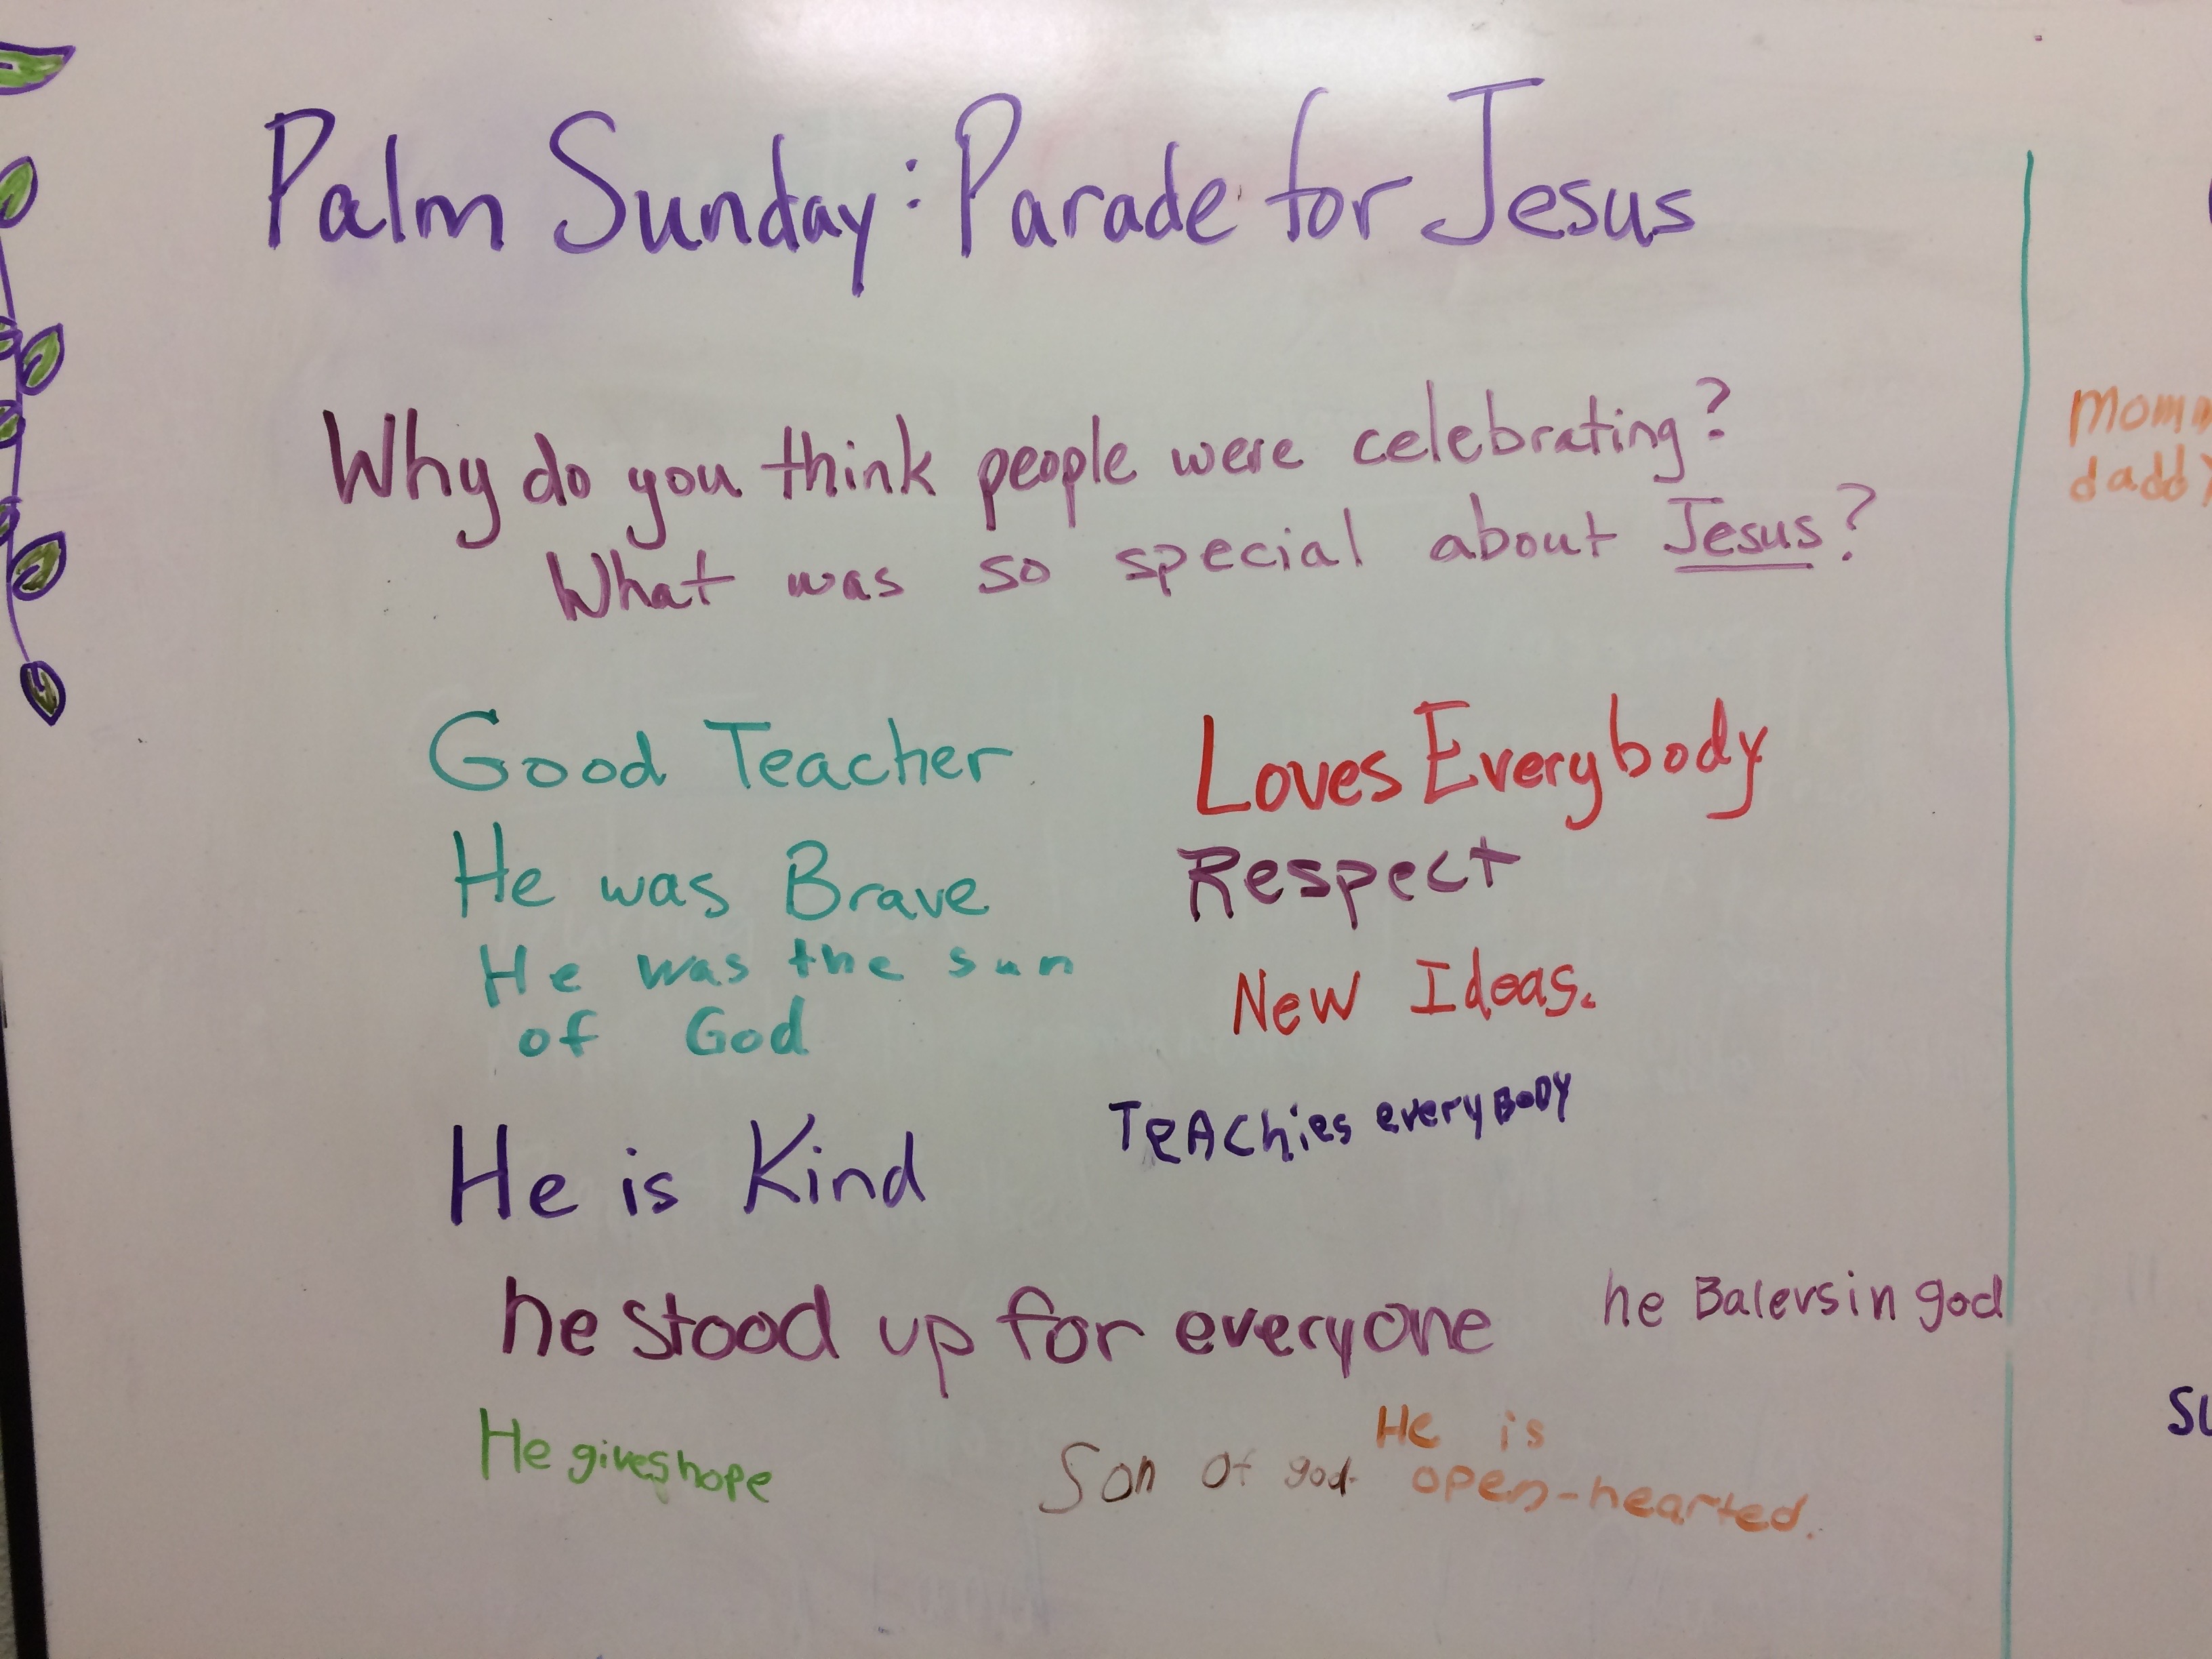 Palm Sunday: Parade for Jesus
Why do you think people were celebrating?
What was so special about Jesus?
Good Teacher
Loves Everybody
He was Brave
Respect
He was the sun
of God
New Ideas.
TeAChies everyBODY
He is Kind
he stood up for everyone
he Balevsin god
He gives hope
Son of god.
He is
open-hearted.
Momm
daddy
su